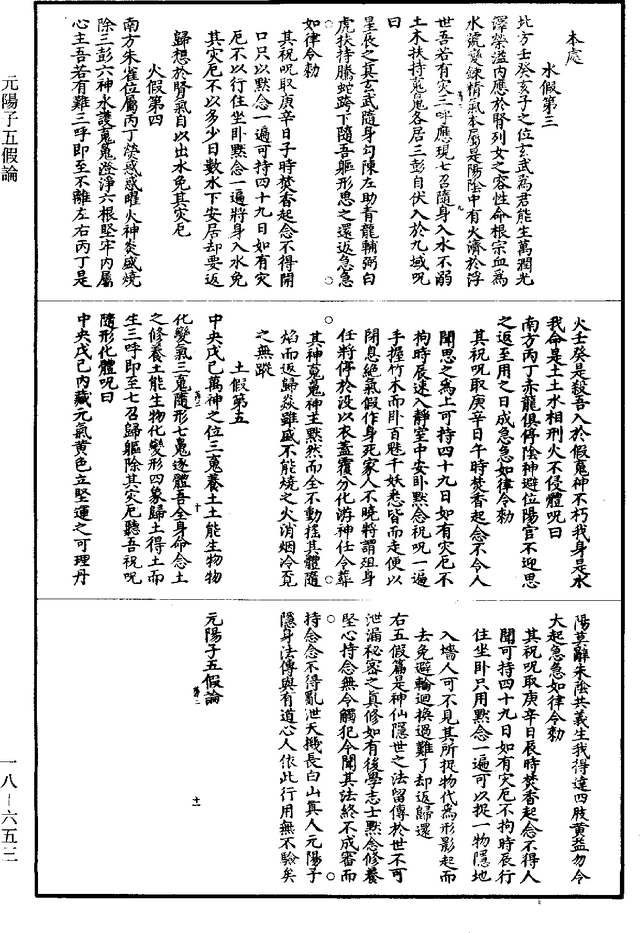 元陽子五假論
一八—六五三
本處
水假第三
北方壬癸亥子之位玄武爲君能生萬潤光
澤榮溢內應於腎列女之容性命根宗血爲
水流變鍊精氣本屬是陽陰中有火濟於浮
世吾若有灾三呼應現七召隨身入水不溺
土木扶持䰟鬼各居三彭自伏入於九域呪
曰
星辰之真玄武隨身勾陳左助青龍輔弼白
虎扶持騰蛇跨下隨吾軀形思之還返急急
如律令勑
其祝呪取庚辛日子時焚香起念不得開
口只以黙念一遍可持四十九日如有灾
厄不以行住坐卧黙念一遍將身入水免
其灾厄不以多少日數水下安居却要返
歸想於腎氣自以出水免其灾厄
火假第四
南方朱雀位屬丙丁熒惑感曜火神炎盛燒
除三彭六神水護䰟䰟澄淨六根堅牢内屬
心主吾若有難三呼即至不離左右丙丁是
火壬癸是殺吾入於假䰟神不朽我身是水
我命是土土水相刑火不侵體呪曰
南方丙丁赤龍俱停陰神避位陽官不迎思
之返至用之日成急急如律令勑
其祝呪取庚辛日午時焚香起念不令人
聞思之爲上可持四十九日如有灾厄不
拘時辰速入靜室中安卧黙念祝呪一遍
手握竹木而卧百魅千妖悉皆而走便以
閉息絶氣假作身死家人不曉將謂殂身
任將停於設以衣蓋覆分化游神仕令葬
其神䰟䰟神主黙然而全不動搖其體隨
焰而返歸焱雖盛不能燒之火消烟冷覔
之無蹤
土假第五
中央戊己萬神之位三䰟養土土能生物物
化變氣三䰟隨形七䰟逐體吾全身命念土
之修養土能生物化變形四象歸土得土而
生三呼即至七召歸軀除其灾厄聽吾祝呪
隨形化體呪曰
中央戊己内藏元氣黄色立堅運之可理丹
陽莫辭朱陰共義生我得達四肢黄益勿令
大起急急如律令勑
其祝呪取庚辛日辰時焚香起念不得人
聞可持四十九日如有灾厄不拘時辰行
住坐卧只用黙念一遍可以捉一物隱地
入墻人可不見其所捉物代爲形影起而
去免避輪迴換過難了却返歸還
右五假篇是神仙隱世之法留傳於世不可
泄漏秘密之真修如有後學志士黙念修養
堅心持念無令觸犯今聞其法終不成審而
持念念不得亂泄天機長白山真人元陽子
隱身法傳與有道心人依此行用無不驗矣
元陽子五假論